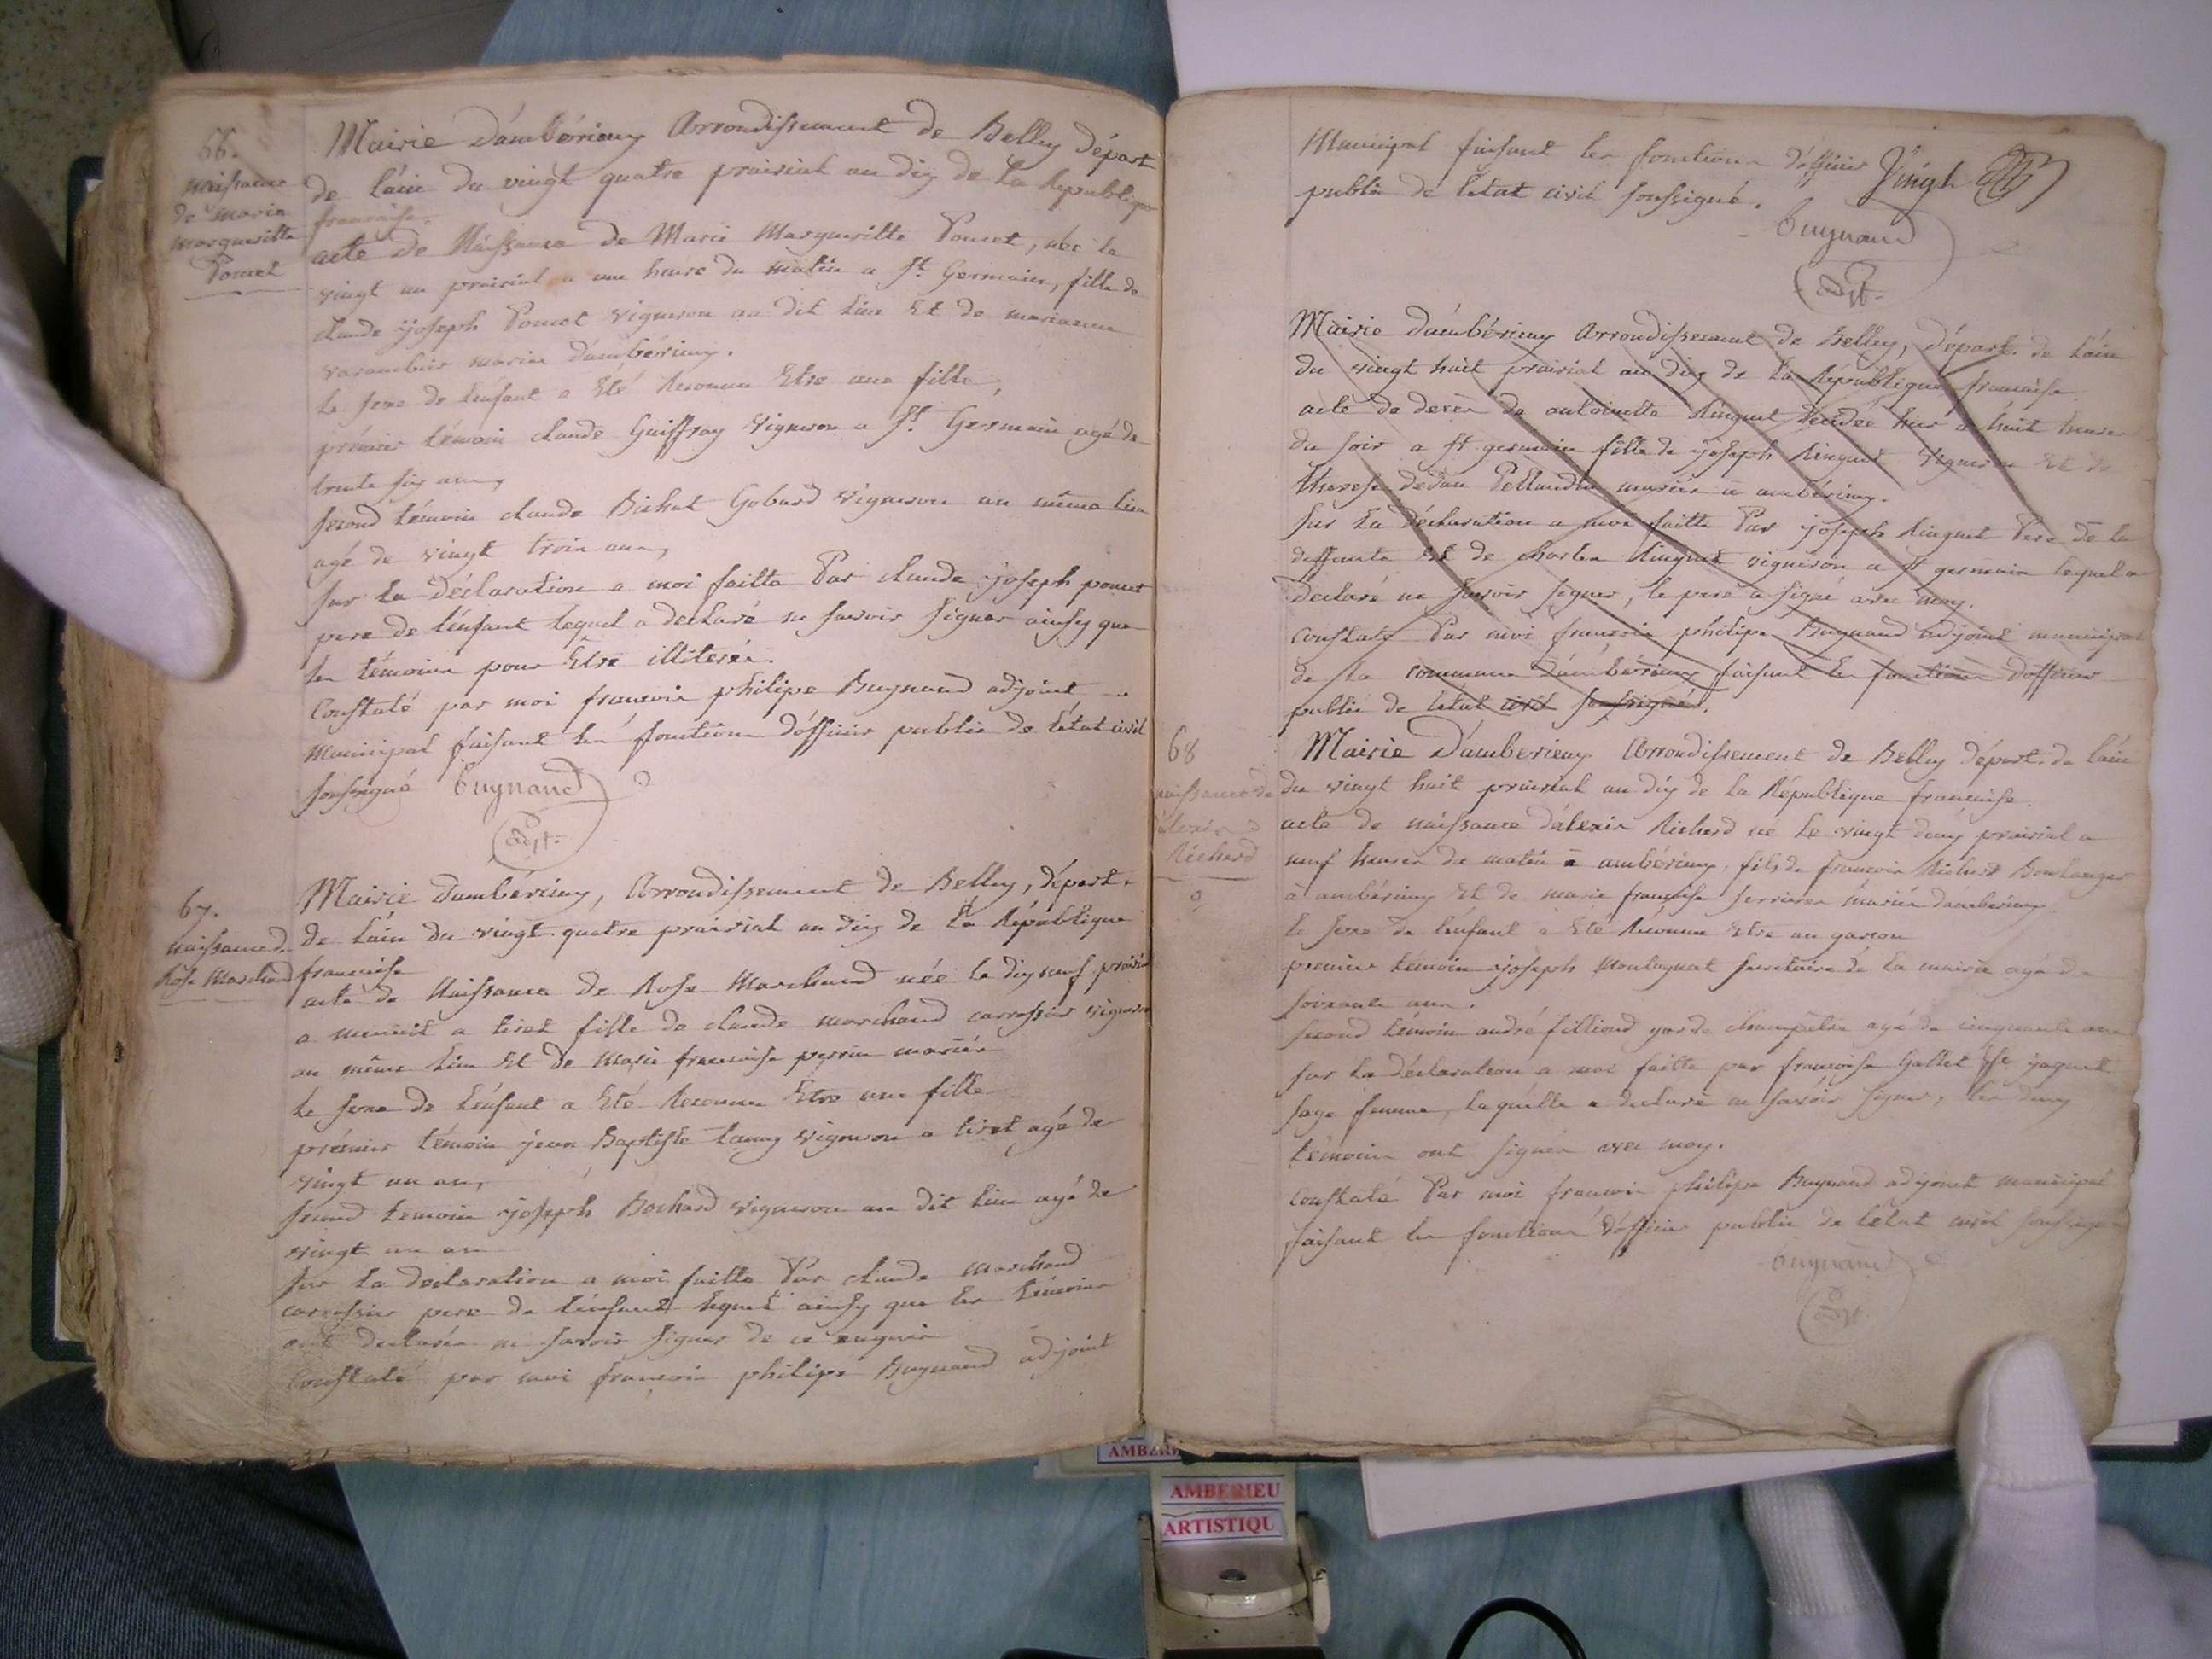 66.
naissance
de marie
margueritte
Poncet
Mairie D'ambérieux Arrondissement de Belley départ
de L'ain du vingt quatre prairial an dix de La Republique
francaise.
acte de Naissance de Marie Margueritte Poncet, née le
vingt un prairial a une heure du matin a St. Germain, fille de
claude joseph Poncet vigneron au dit lieu Et de marianne
mariés d'ambérieux.
Le sexe de L'enfant a Eté Reconnu Etre une fille,
prémier témoin claude Guiffray vigneron a St. Germain agé de
trente six ans,
second témoin claude Bichat Gobard vigneron au même lieu
agé de vingt trois ans,
sur La déclaration a moi faitte Par claude joseph poncet
pere de L'enfant lequel a déclaré ne savoir signer ainsy que
les témoins pour Etre illiterés.
Constaté par moi francois philipe Bugnand adjoint
Municipal faisant les fonctions d'officier public de L'état civil
soussigné Bugnand
Adjt.
67.
naissance de
Rose Marchand
Mairie d'ambérieux, Arrondissement de Belley, départ.
de L'ain du vingt quatre prairial an dix de La République
francaise
acte de Naissance de Rose Marchand née le dix neuf prairial
a minuit a tiret fille de claude marchand carrossier vigneron
au même lieu Et de Marie francoise perrin mariés
Le sexe de L'enfant a Eté Reconnu Etre une fille
prémier témoin jean Baptiste vigneron a tiret agé de
vingt un ans,
second témoin joseph Bochard vigneron au dit lieu agé de
vingt un an
sur La declaration a moi faitte Par claude marchand
carrossier pere de L'enfant lequel ainsy que les témoins
ont declarés ne savoir signer de ce enquis
Constaté par moi francois philipe Bugnand adjoint
Municipal faisant les fonctions d'officier
public de L'état civil soussigné.
Bugnand
Adjt.
Mairie d'ambérieux Arrondissement de Belley, départ. de L'ain
du vingt huit prairial an dix de La République francaise.
acte de decès de antoinette Ringuet decidée hier a huit heures
du soir a St germain fille de joseph Ringuet vigneron Et de
Therese mariés a ambérieux.
sur La déclaration a moi faitte Par joseph Ringuet Pere de la
deffunte Et de charles Ringuet vigneron a St germain lequel a
declaré ne savoir signer, le pere a signé avec moy.
Constaté Par moi francois philipe Bugnand adjoint municipal
de la commune d'ambérieux faisant les fonctions d'officier
public de L'état civil soussigné.
68
naissance de
d'alexis
Richerd
Mairie D'amberieux Arrondissement de Belley départ. de L'ain
du vingt huit prairial an dix de La République francaise.
acte de naissance d'alexis Richerd né le vingt deux prairial a
neuf heures du matin a ambérieux, fils de francois Richerd Boulanger
à ambérieux Et de marie francoise mariés d'ambérieux
le sexe de L'enfant à Eté Reconnu Etre un garcon
premier témoin joseph Montagnat secretaire de la mairie agé de
soixante ans.
second témoin andré filliond garde champêtre agé de cinquante ans
sur La déclaration a moi faitte par francoise Gallet fe jaquet
sage femme, Laquelle a declaré ne savoir signer, les deux
témoins ont signés avec moy.
Constaté Par moi francois philipe Bugnand adjoint municipal
faisant les fonctions d'officier public de L'état civil soussigné
Bugnand
Adjt.
AMBERIEU
ARTISTIQU